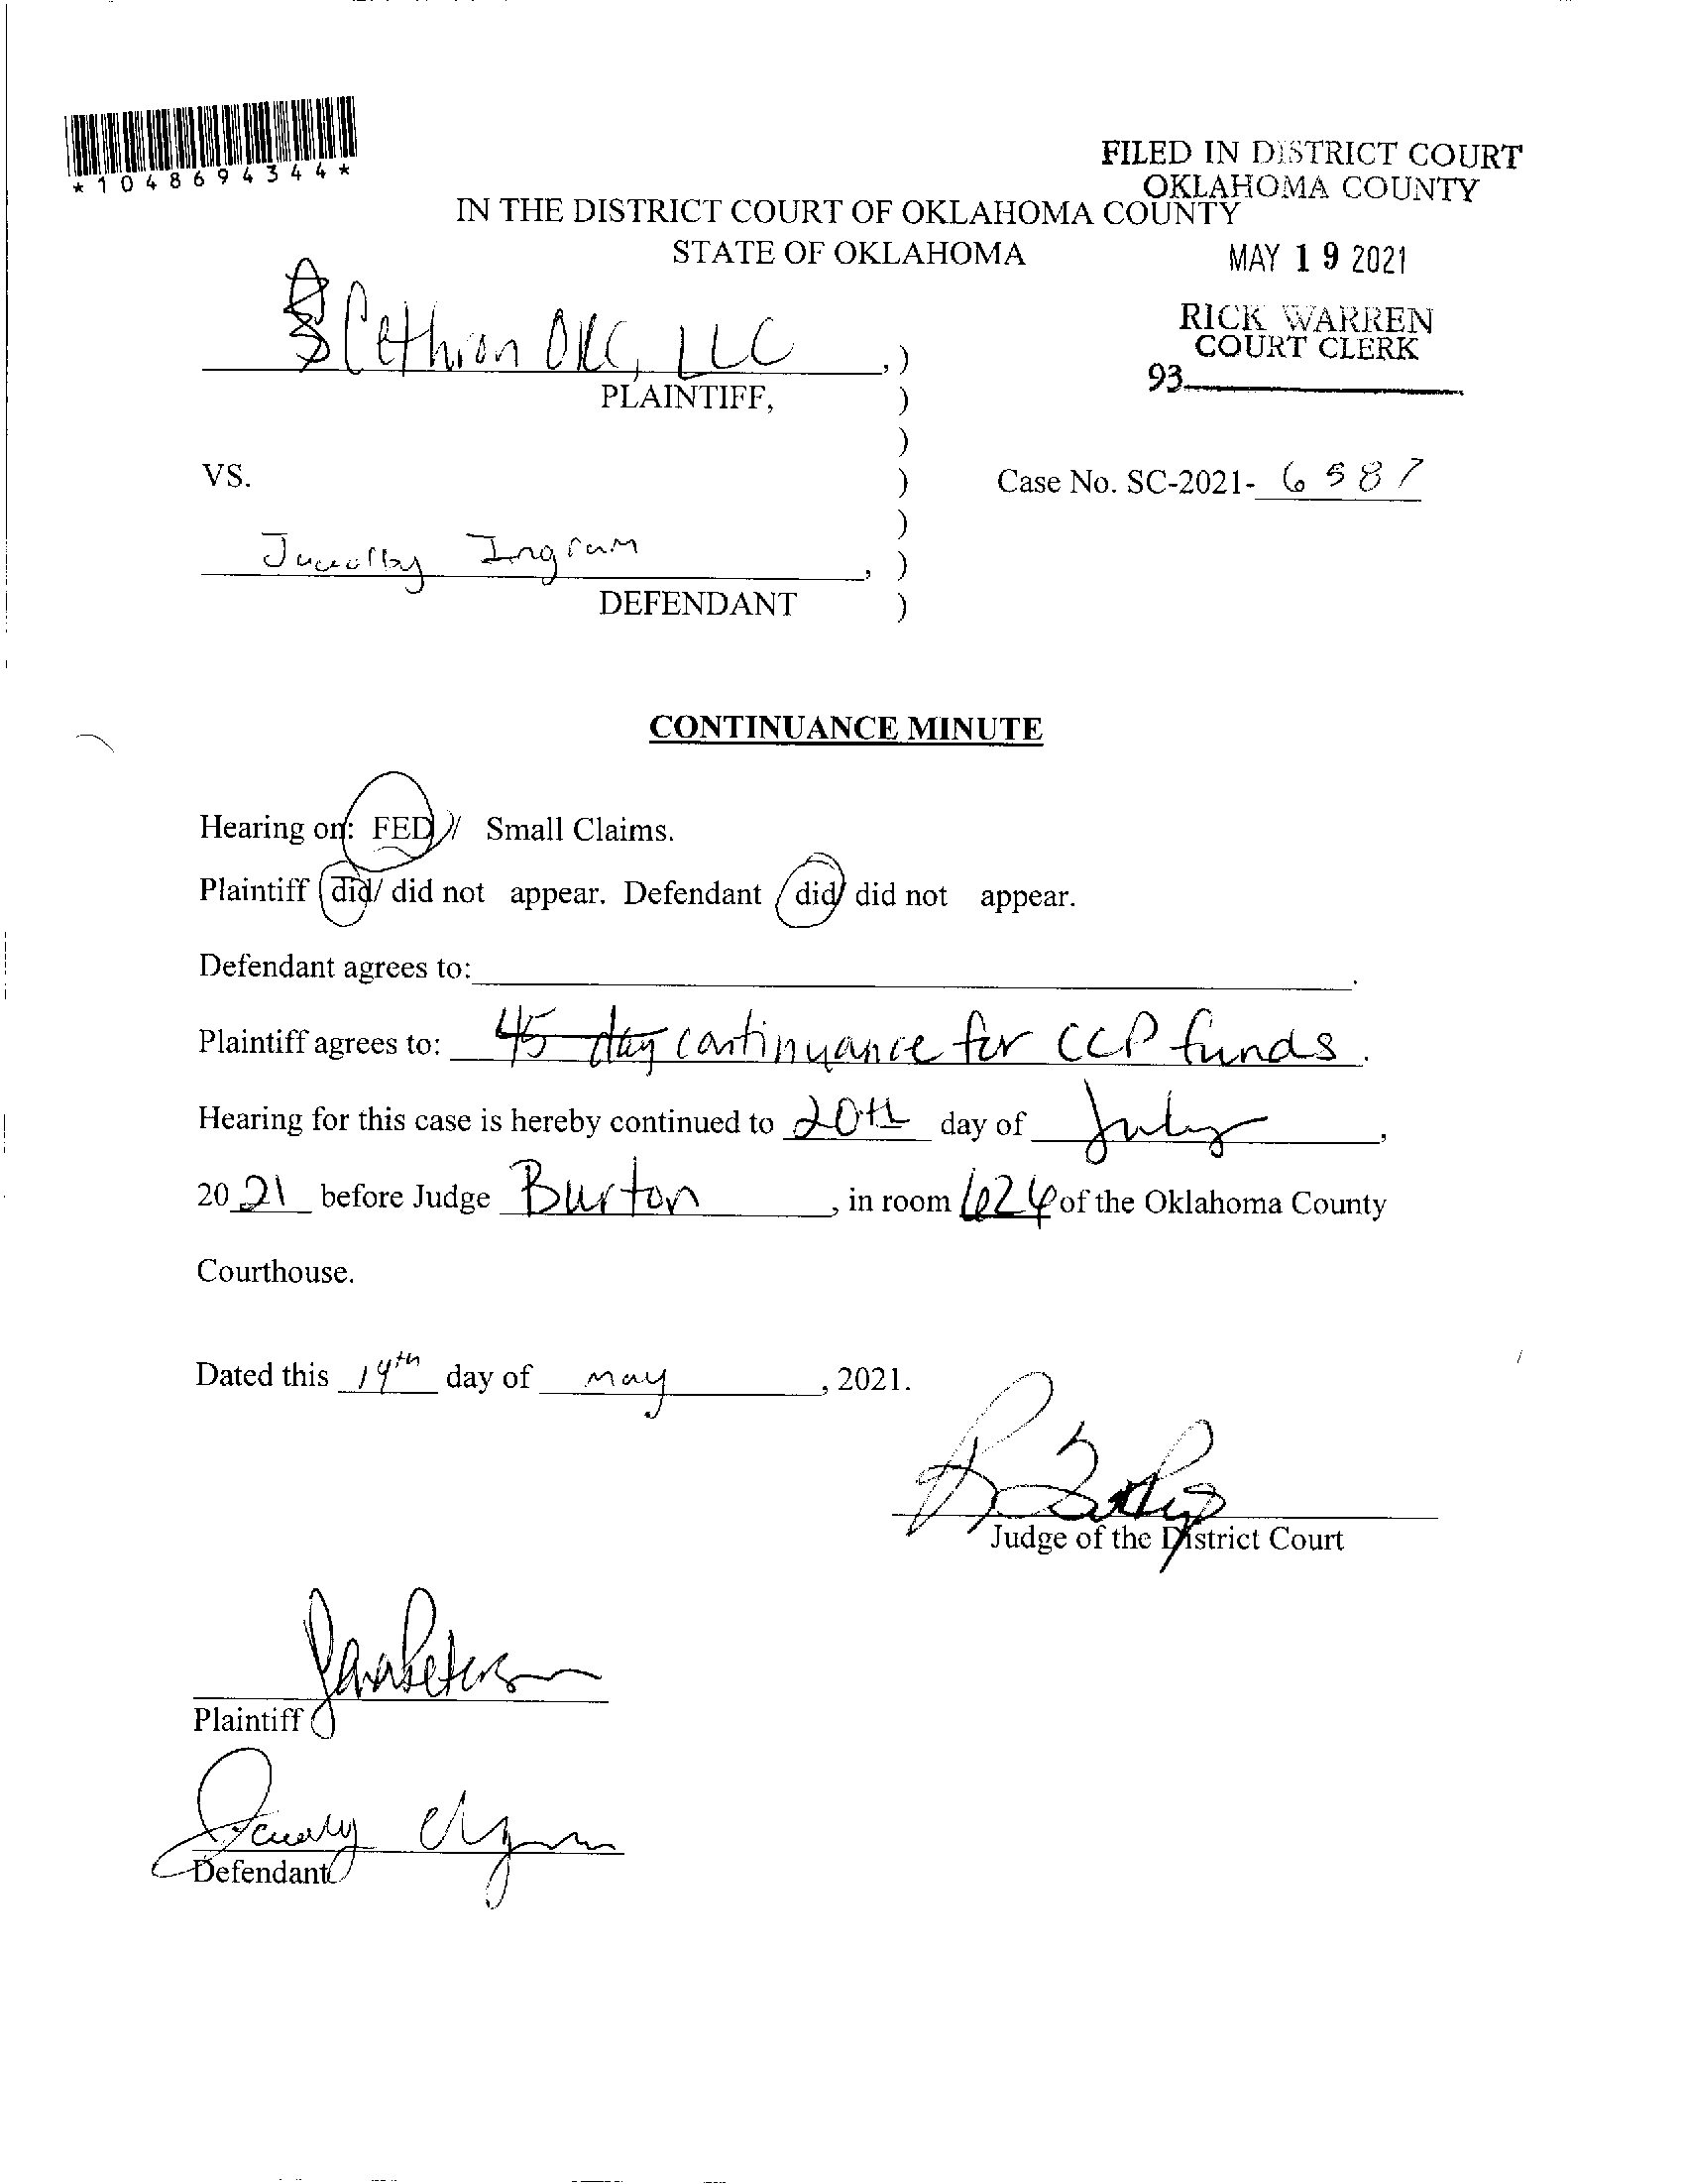 *1048694344*
FILED IN DISTRICT COURT
OKLAHOMA COUNTY
IN THE DISTRICT COURT OF OKLAHOMA COUNTY
STATE OF OKLAHOMA
MAY 19 2021
RICK WARREN
COURT CLERK
93
OKC, LLC ,)
PLAINTIFF, )
)
VS. )
Case No. SC-2021- 6587
)
Ingram , )
DEFENDANT )
CONTINUANCE MINUTE
Hearing on: FED // Small Claims.
Plaintiff did/ did not appear. Defendant did/ did not appear.
Defendant agrees to: .
Plaintiff agrees to: 45 day continuance for CCP funds.
Hearing for this case is hereby continued to 20th day of July,
2021 before Judge Burton, in room 624 of the Oklahoma County
Courthouse.
Dated this 19th day of may, 2021.
Judge of the District Court
Plaintiff
Defendant